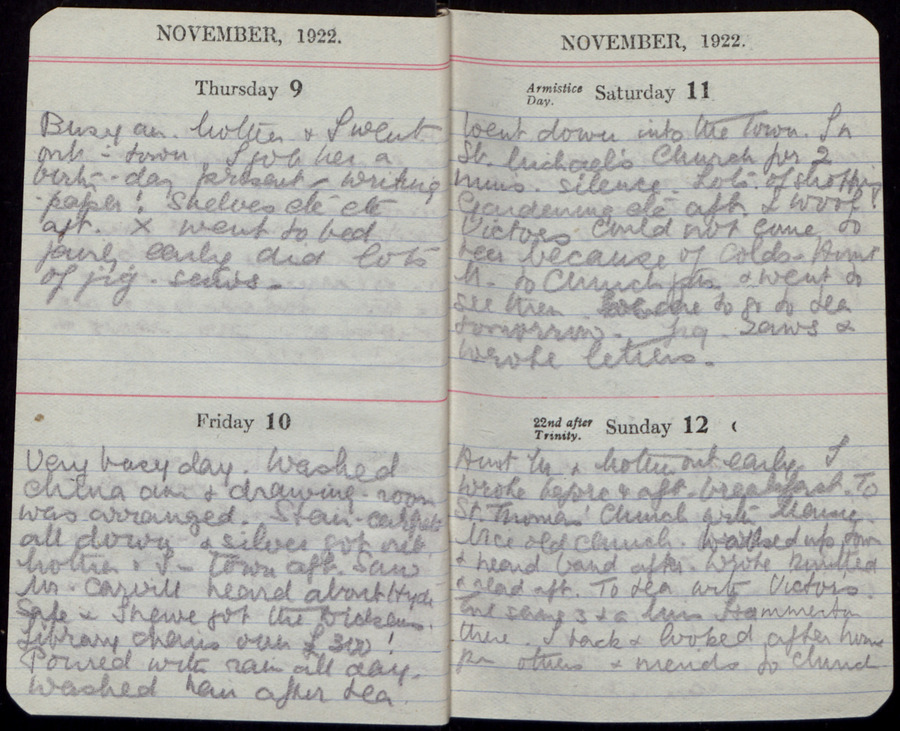 NOVEMBER, 1922.
Thursday 9
Busy am. Mother & I went
out - town. I got her a
birth-day present - writing
-paper! Shelves etc etc
aft. X went to bed
early did lots
of jig-saws -
Friday 10
Very busy day. Washed
china am & drawing-room
was arranged. Stair-carpet
all down & silver got out
Mother & I - Town aft. Saw
Mr heard about Hyde
Safe & got the
Library chairs over £300!
Poured with rain all day.
Washed hair after tea.
NOVEMBER, 1922.
Armistice Day. Saturday 11
Went down into the Town. In
St. Michael's Church for 2
mins. silence. Lots of shopping
Gardening etc aft. & wool!
Victors could not come to
tea because of colds - Aunt
M. to Church & went to
see them. to go to tea
tomorrow. Jig-saws &
wrote letters -
22nd after Trinity. Sunday 12
Aunt M & Mother out early. I
wrote before & aft. breakfast. To
St. Thomas' Church with
Nice old church. Walked up town
& heard band after. Wrote knitted
& read aft. To tea with Victors.
The same 3 & a Miss Hammerton
there I back & looked after house
for others & to Church